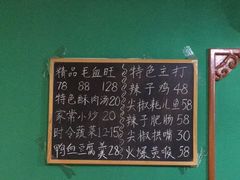 精品毛血旺
78 88 128
特色酥肉汤20
家常小炒 20
时令蔬菜12-15
鸭血豆腐羹28
特色主打
辣子鸡48
尖椒耗儿鱼58
辣子肥肠58
尖椒拱嘴30
火爆菜喉58